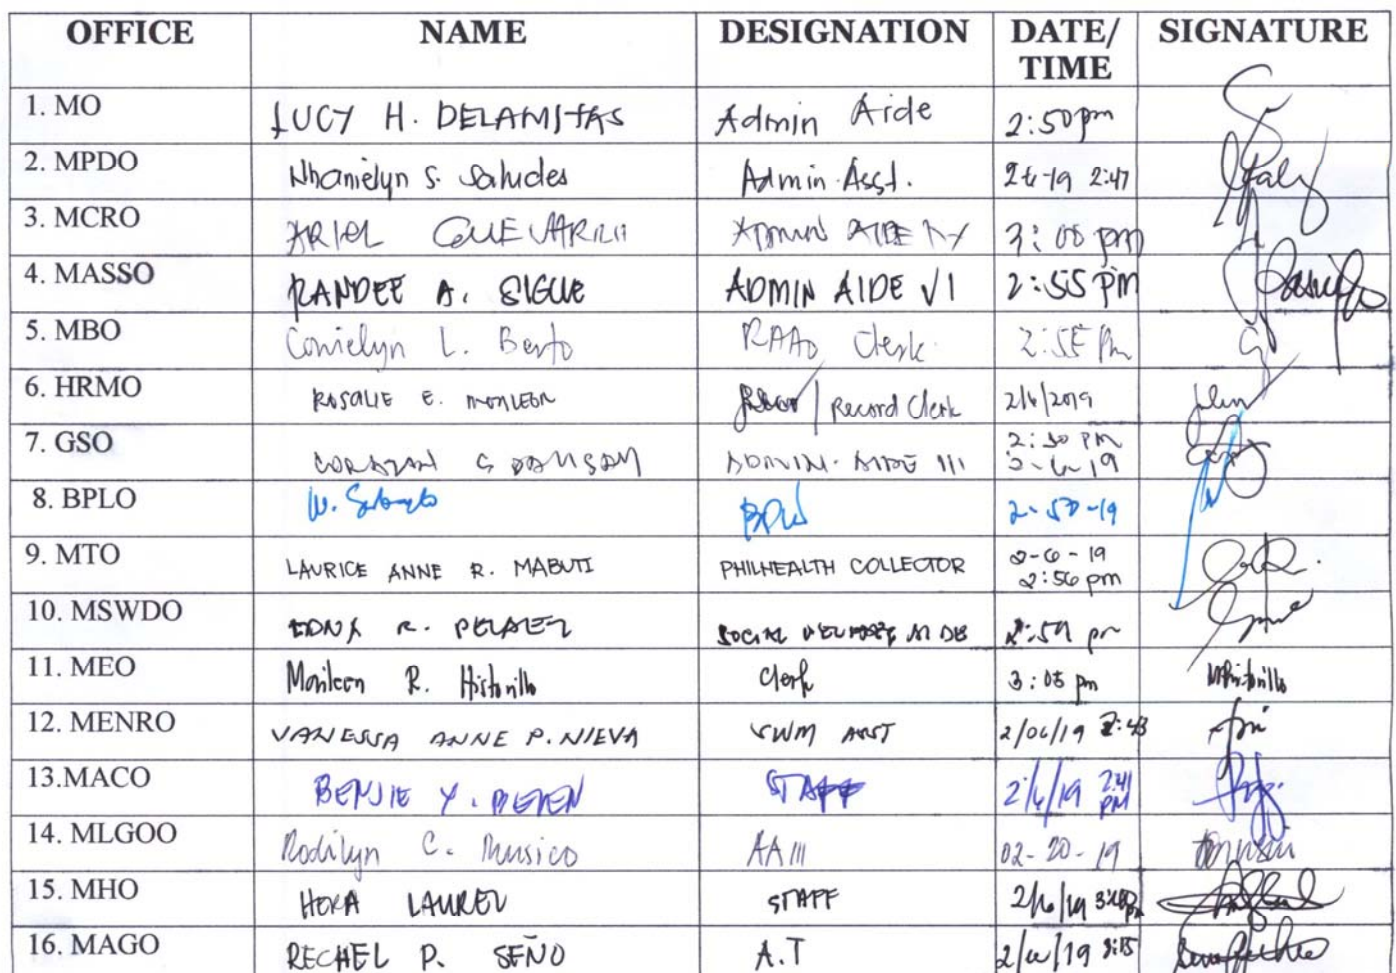 OFFICE NAME DESIGNATION DATE/ TIME SIGNATURE
1. MO LUCY H. DELAMITAS Admin Aide 2:50pm
2. MPDO Nhanielyn S. Saludes Admin Asst. 2-6-19 2:47
3. MCRO ARIEL GUEVARRA ADMIN AIDE IV 3:00 pm
4. MASSO RANDEE A. SIGUE ADMIN AIDE VI 2:55 PM
5. MBO Conielyn L. Berto Clerk 2:55 Pm
6. HRMO ROSALIE E. MONLEON / Record Clerk 2/6/2019
7. GSO CORAZON ADMIN. AIDE III 2:30 PM
2-6-19
8. BPLO W. BPLO 2-50-19
9. MTO LAURICE ANNE R. MABUTI PHILHEALTH COLLECTOR 2-6-19
2:56 pm
10. MSWDO EDNA R. PELAEZ SOCIAL WELFARE AIDE 2:59 pm
11. MEO R. Clerk 3:05 pm
12. MENRO VANESSA ANNE P. NIEVA SWM ASST 2/06/19 2:43
13.MACO BENJIE Y. STAFF 2/6/19 2:41 PM
14. MLGOO Rodilyn C. Musico AA III 02-20-19
15. MHO LAUREL STAFF 2/6/19
16. MAGO RECHEL P. SEÑO A.T 2/6/19 3:15